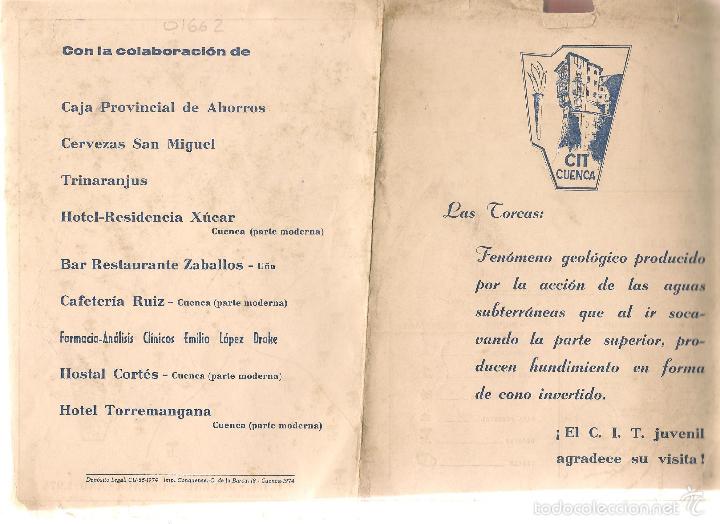 01662
Con la colaboración de
Caja Provincial de Ahorros
Cervezas San Miguel
Trinaranjus
Hotel-Residencia Xúcar
Cuenca (parte moderna)
Bar Restaurante Zaballos - Uña
Cafetería Ruiz - Cuenca (parte moderna)
Farmacia-Análisis Clínicos Emilio López Drake
Hostal Cortés - Cuenca (parte moderna)
Hotel Torremangana
Cuenca (parte moderna)
Depósito Legal, CU-55-1974 Imp. Conquense.-C. de la Barca, 18 - Cuenca-1974
CIT
CUENCA
Las Torcas:
Fenómeno geológico producido
por la acción de las aguas
subterráneas que al ir soca-
vando la parte superior, pro-
ducen hundimiento en forma
de cono invertido.
¡El C. I. T. juvenil
agradece su visita!
todocoleccion.net